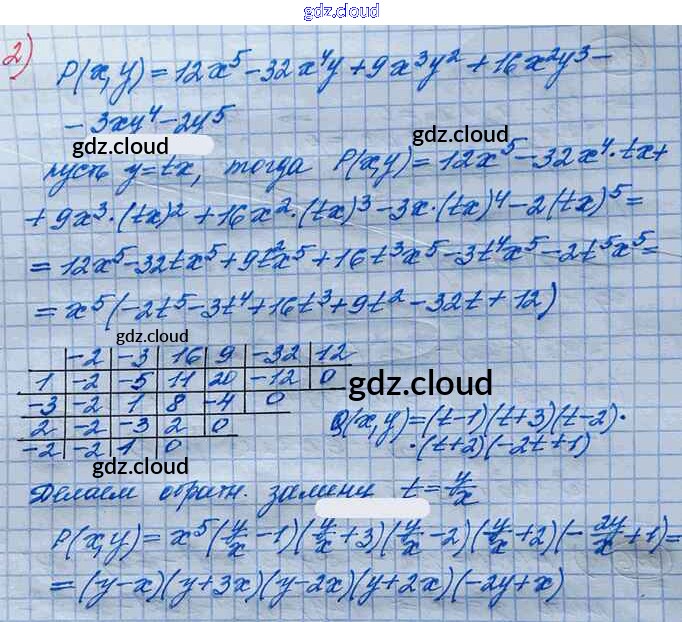 gdz.cloud
2)
P(x,y) = 12x⁵ - 32x⁴y + 9x³y² + 16x²y³ -
- 3xy⁴ - 2y⁵
gdz.cloud
gdz.cloud
пусть y=tx, тогда P(x,y) = 12x⁵ - 32x⁴·tx +
+ 9x³·(tx)² + 16x²·(tx)³ - 3x·(tx)⁴ - 2(tx)⁵ =
= 12x⁵ - 32tx⁵ + 9t²x⁵ + 16t³x⁵ - 3t⁴x⁵ - 2t⁵x⁵ =
= x⁵(-2t⁵ - 3t⁴ + 16t³ + 9t² - 32t + 12)
gdz.cloud
-2 -3 16 9 -32 12
1 -2 -5 11 20 -12 0
gdz.cloud
-3 -2 1 8 -4 0
2 -2 -3 2 0
-2 -2 1 0
Q(x,y) = (t-1)(t+3)(t-2)·
·(t+2)(-2t+1)
gdz.cloud
Делаем обратн. замену t = y/x
gdz.cloud
P(x,y) = x⁵(y/x - 1)(y/x + 3)(y/x - 2)(y/x + 2)(-2y/x + 1) =
= (y-x)(y+3x)(y-2x)(y+2x)(-2y+x)
gdz.cloud